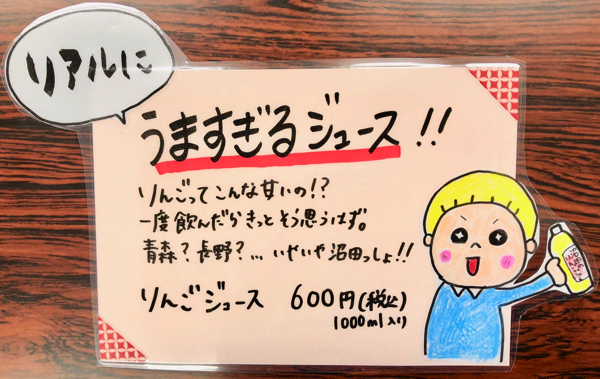 リアルに
うますぎるジュース!!
りんごってこんな甘いの!?
一度飲んだらきっとそう思うはず。
青森?長野?...いやいや沼田っしょ!!
りんごジュース 600円(税込)
1000ml入り